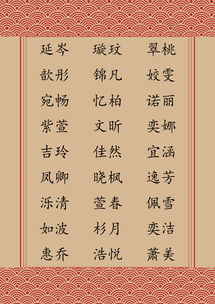 延岑 璇玟 翠桃
歆彤 锦凡 姣雯
宛畅 忆柏 诺丽
紫萱 文昕 奕娜
吉玲 佳然 宜涵
凤卿 晓枫 逸芳
泺清 萱春 佩雪
如波 杉月 奕洁
惠乔 浩悦 萧美